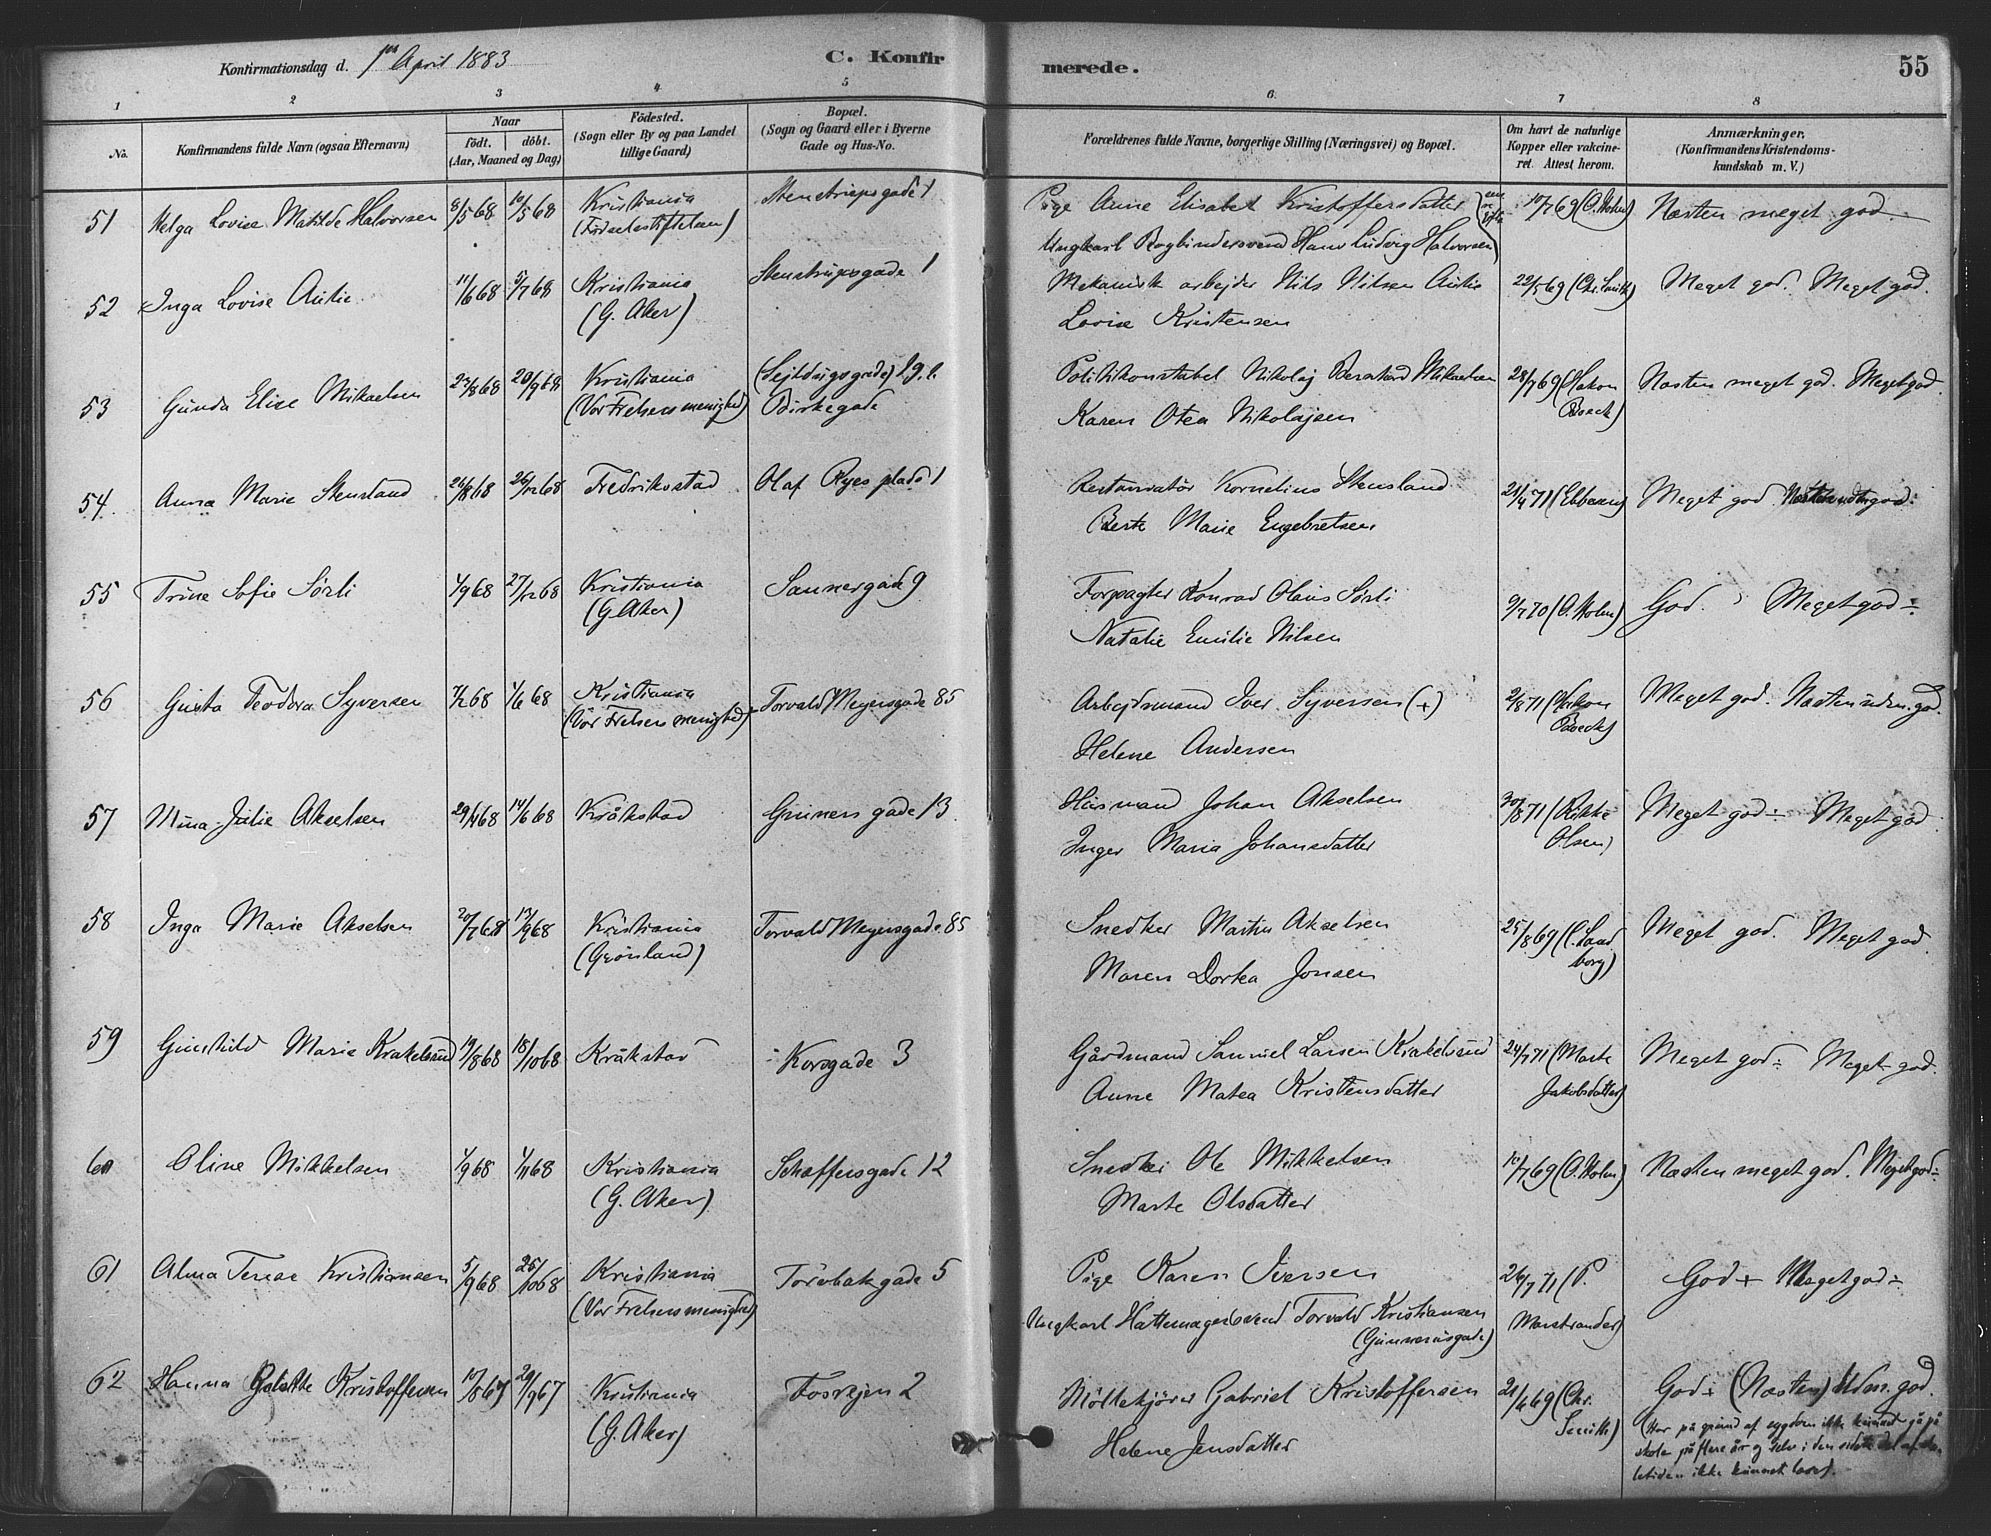 Konfirmationsdag d. 1ste April 1883 C. Konfir merede. 55
1 2 3 4 5 6. 7 8
No. Konfirmandens fulde Navn (ogsaa Efternavn) Naar födt. döbt. (Aar, Maaned og Dag) Födested. (Sogn eller By og paa Landet tillige Gaard) Bopæl. (Sogn og Gaard eller i Byerne Gade og Hus-No. Forældrenes fulde Navne, borgerlige Stilling (Næringsvei) og Bopæl. Om havt de naturlige Kopper eller vakcineret. Attest herom. Anmærkninger. (Konfirmandens Kristendomskundskab m. V.)
51 Helga Lovise Matilde Halvorsen 8/5 68 10/5 68 Kristiania Stenstrupsgade 1 Pige Anne Elisabet Kristoffersdatter 10/7 69 (O. Holm) Næsten meget god
(Fødselsstiftelsen) Ungkarl Bogbindersvend Hans Ludvig Halvorsen
52 Inga Lovise Autie 11/6 68 5/7 68 Kristiania Stenstrupsgade 1 Mekanisk arbejder Nils Nilsen Autie 22/5 69 (Chr. Smith) Meget god. Meget god.
(G. Aker) Lovise Kristensen
53 Gunda Elise Mikaelsen 22/8 68 20/9 68 Kristiania (Sejldugsgade) Politikonstabel Nikolaj Bernhard Mikaelsen 28/7 69 (Hakon Næsten meget god. Meget god.
(Vor Frelsers menighed) Birkegade Karen Otea Nikolajsen Boeck)
54. Anna Marie Stensland 26/8 68 26/12 68 Fredrikstad Olaf Ryes plads 1 Restauratør Kornelius Stensland 21/4 71 (Ebbesen) Meget god
Berte Marie Engebretsen
55 Trine Sofie Sörli 1/9 68 27/12 68 Kristiania Sannergade 9 Forpagter Konrad Olaus Sörli 9/7 70 (O. Holm) God. Meget god ÷
(G. Aker) Natalie Emilie Nilsen
56 Gusta Teodora Syversen 7/2 68 1/6 68 Kristiania Torvald Meyersgade 85 Arbejdsmand Iver Syversen (+) 2/8 71 (Hakon Meget god. Næsten udm. god.
(Vor Frelsers menighed) Helene Andersen Boeck)
57 Mina Julie Akselsen 29/4 68 14/6 68 Kråkstad Grüners gade 13. Husmand Johan Akselsen 30/8 71 (Rikke Meget god ÷ Meget god
Inger Maria Johansdatter Olsen)
58 Inga Marie Akselsen 20/7 68 13/9 68 Kristiania Torvald Meyersgade 85 Snedker Martin Akselsen 25/8 69 (C. Sand Meget god. Meget god
(Grönland) Maren Dortea Jonsen borg)
59 Gunhild Marie Krakelsrud 19/8 68 18/10 68 Kråkstad Korsgade 3 Gårdmand Samuel Larsen Krakelsrud 24/7 71 (Marte Meget god ÷ Meget god.
Anne Matea Kristensdatter Jakobsdatter)
60 Oline Mikkelsen 1/9 68 1/11 68 Kristiania Schæffersgade 12 Snedker Ole Mikkelsen 10/7 69 (O. Holm) Næsten meget god. Meget god ÷
(G. Aker) Marte Olsdatter
61 Alma Terese Kristiansen 5/9 68 25/10 68 Kristiania Torvbakgade 5 Pige Karen Iversen 26/7 71 (P. God + Meget god ÷
(Vor Frelsers menighed) Ungkarl Hattemagersvend Torvald Kristiansen Marstrander)
(Gunnerusgade)
62 Hanna Kristoffersen 10/8 67 29/9 67 Kristiania Fosvejen 2 Möllekjörer Gabriel Kristoffersen 21/6 69 (Chr. God ÷ (Næsten) udm. god.
(G. Aker) Helene Jensdatter Smith) (Har på grund af sygdom ikke kunnet gå på
skole på flere år og selv i den sidste del af
letiden ikke kunnet læse).